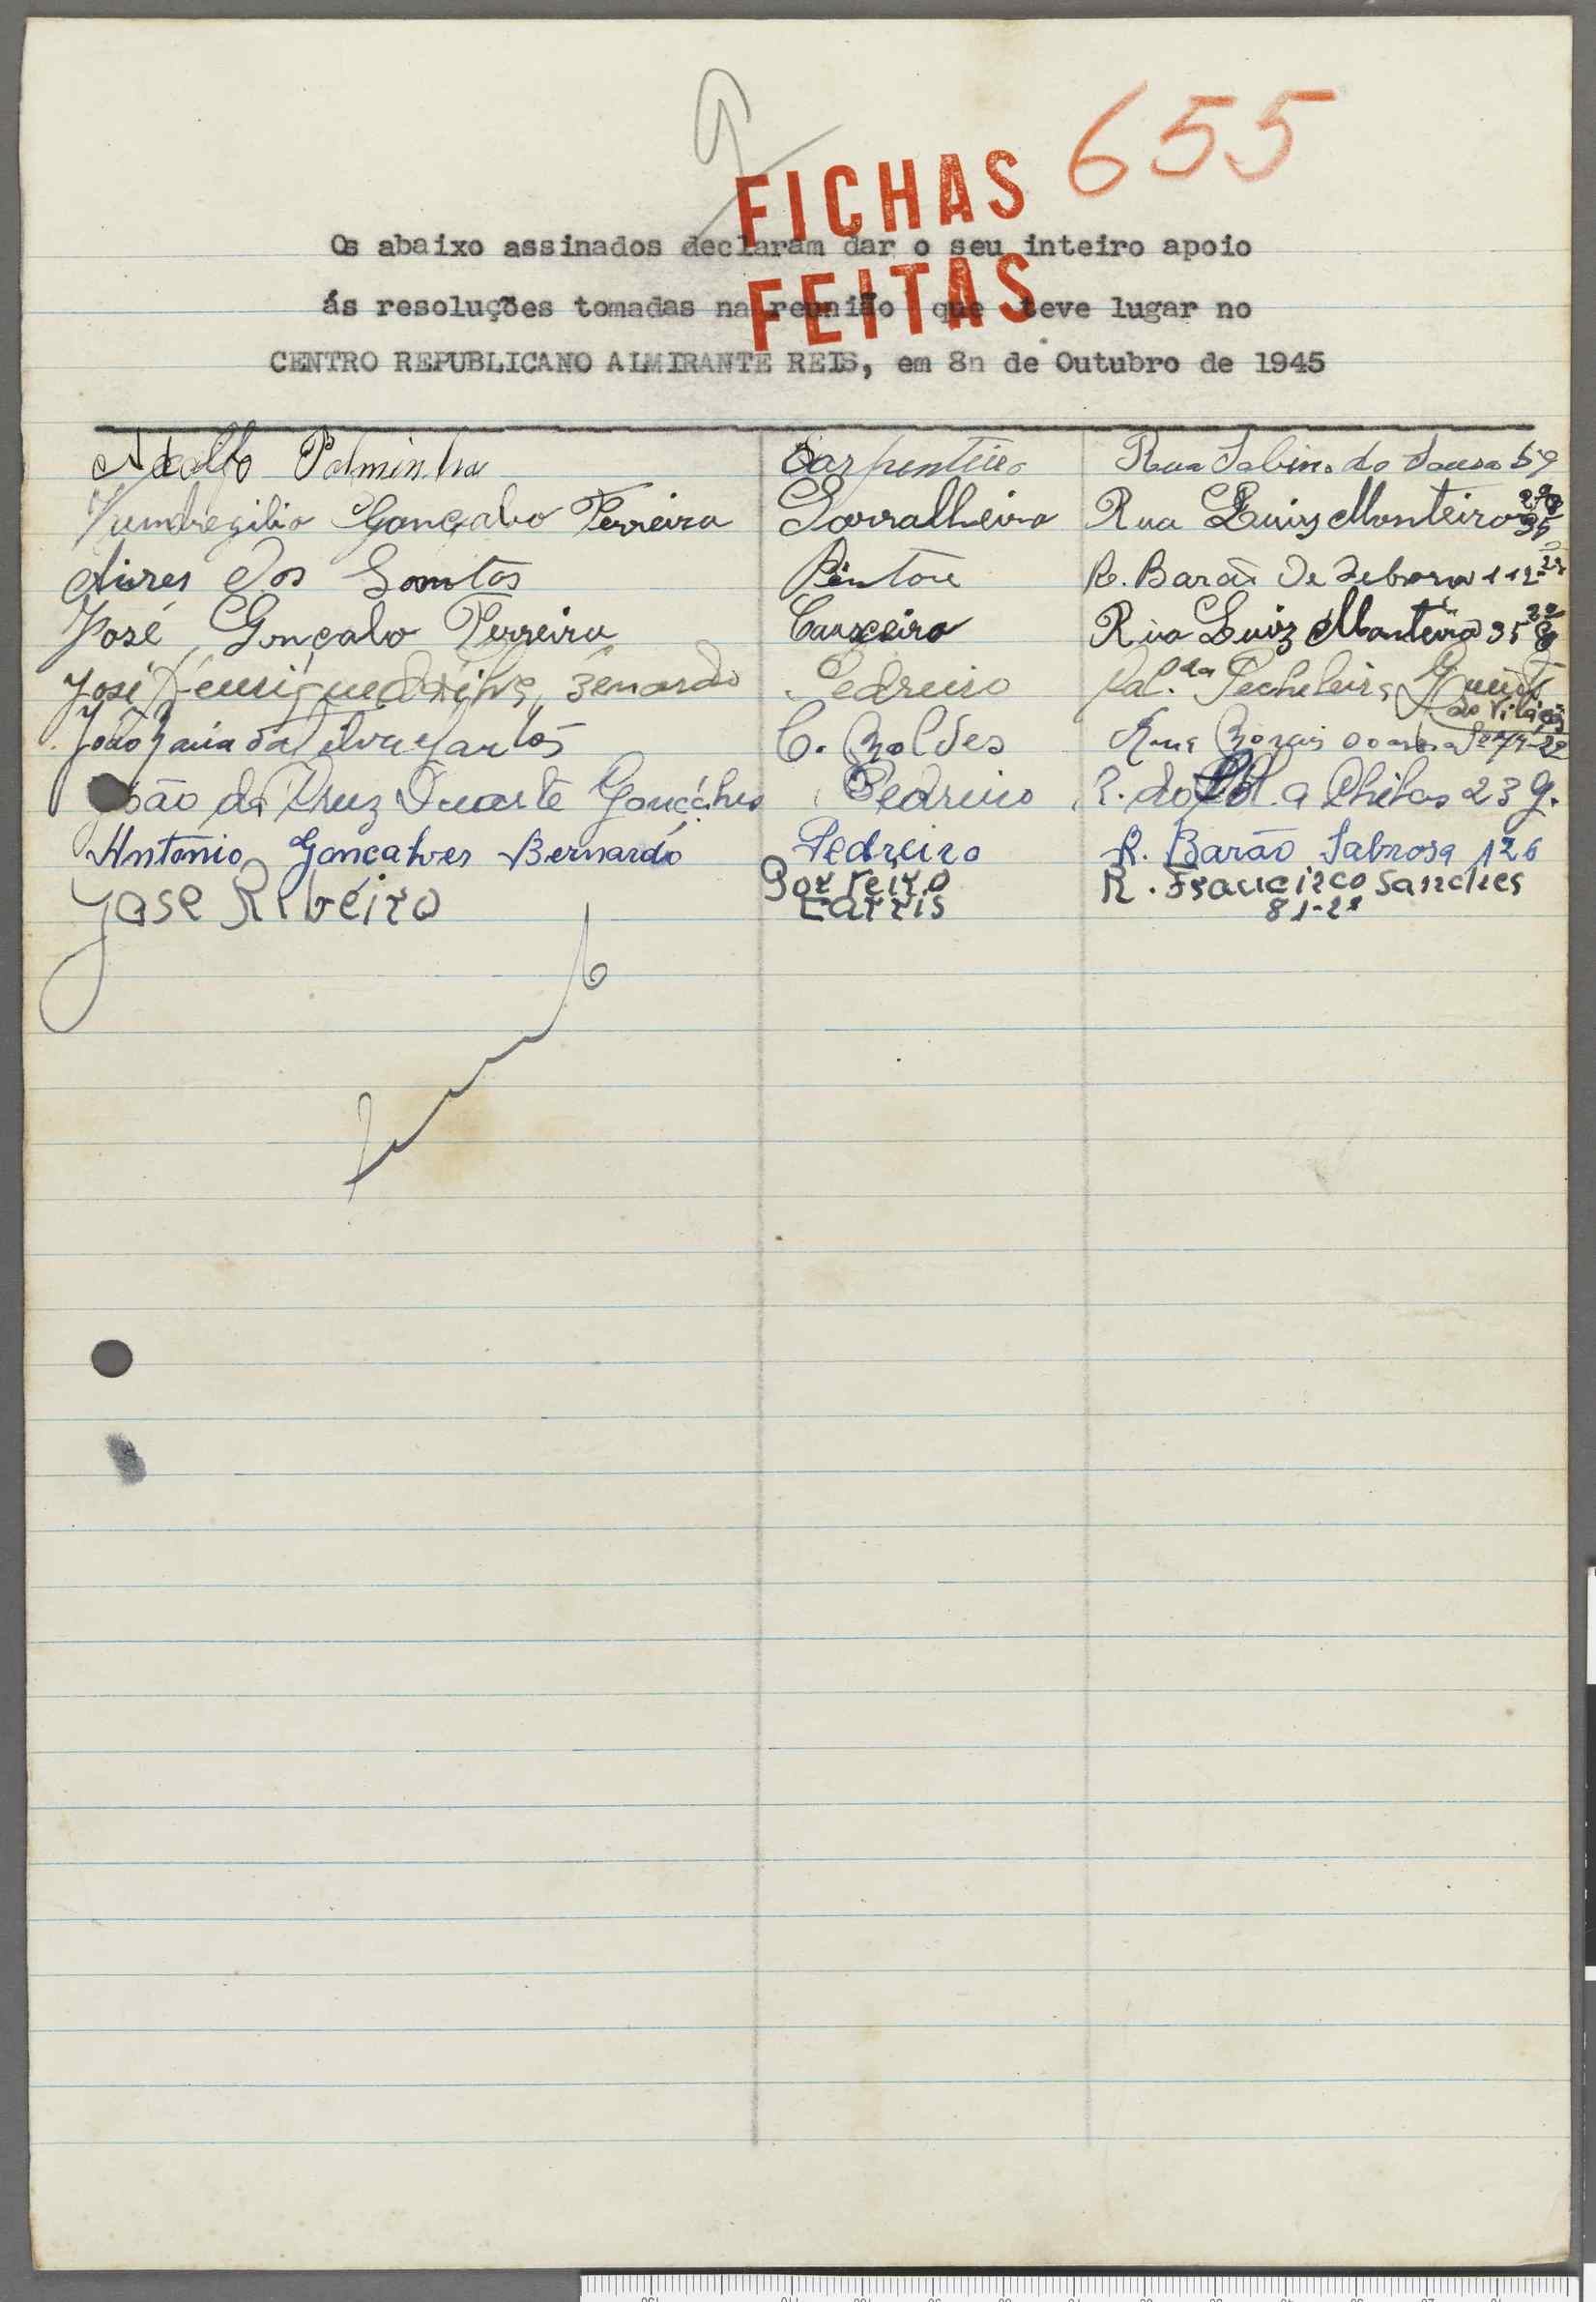 655
FICHAS
FEITAS
Os abaixo assinados declaram dar o seu inteiro apoio
ás resoluções tomadas na reunião que teve lugar no
CENTRO REPUBLICANO ALMIRANTE REIS, em 8n de Outubro de 1945
Adolfo Palminha Carpinteiro Rua Sabino de Sousa 59
Gonçalvo Ferreira Sarralheiro Rua Luiz Monteiro 35
Aires dos Santos Pintor R. Barão de 112-2º
José Gonçalvo Ferreira Rua Luiz Monteiro 35
José Henrique da Silva Bernardo Pedreiro da
João da Silva C. Moldes Rua
João da Cruz Duarte Gonçalves Pedreiro R. do a Chelas 23 g.
António Gonçalves Bernardo Pedreiro R. Barão Sabrosa 126
Jose Ribeiro Porteiro R. Francisco Sanches
Carris 81-2º